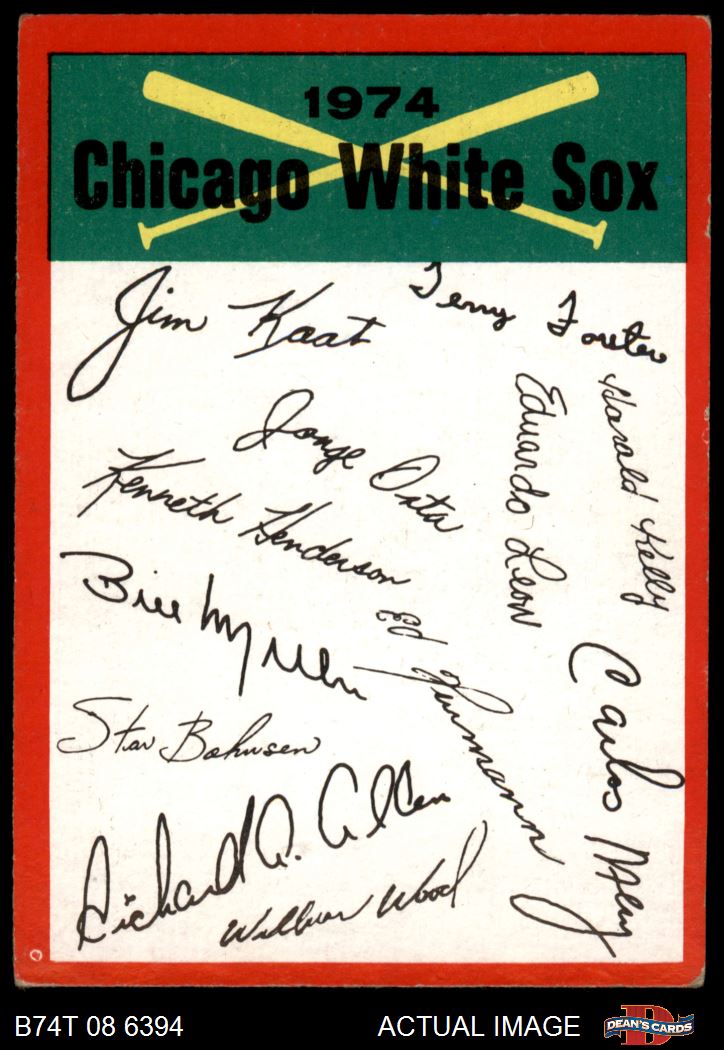 1974
Chicago White Sox
Jim Kaat
Terry Forster
Jorge Orta
Eduardo Leon
Harold Kelly
Kenneth Henderson
Bill Melton
Ed Herrmann
Carlos May
Stan Bahnsen
Richard A. Allen
Wilbur Wood
B74T 08 6394
ACTUAL IMAGE
DEAN'S CARDS